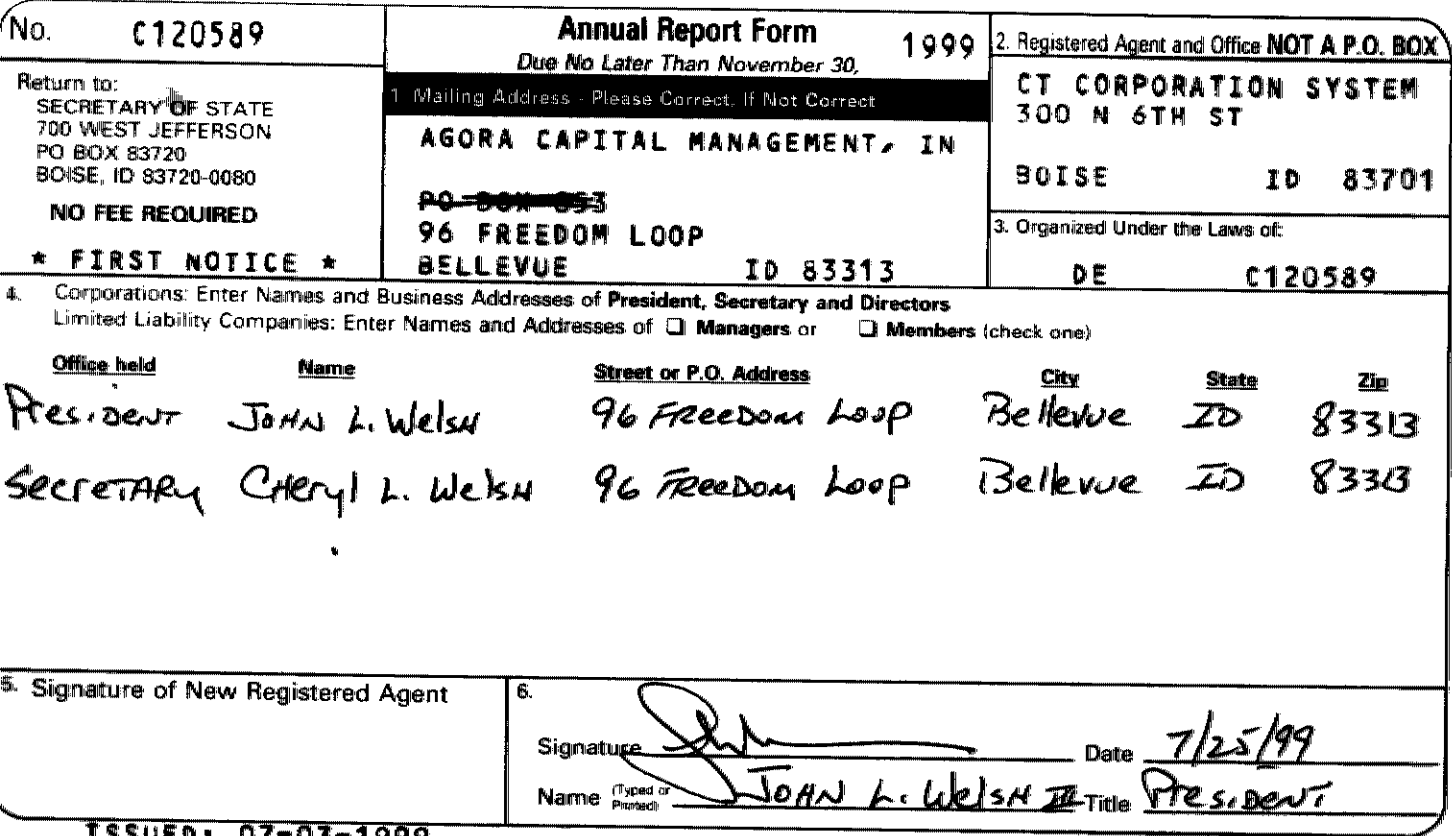 No. C120589
Return to:
SECRETARY OF STATE
700 WEST JEFFERSON
PO BOX 83720
BOISE, ID 83720-0080
NO FEE REQUIRED
* FIRST NOTICE *
Annual Report Form 1999
Due No Later Than November 30,
1 Mailing Address - Please Correct, If Not Correct
AGORA CAPITAL MANAGEMENT, IN
PO BOX 853
96 FREEDOM LOOP
BELLEVUE ID 83313
2. Registered Agent and Office NOT A P.O. BOX
CT CORPORATION SYSTEM
300 N 6TH ST
BOISE ID 83701
3. Organized Under the Laws of:
DE C120589
4. Corporations: Enter Names and Business Addresses of President, Secretary and Directors
Limited Liability Companies: Enter Names and Addresses of ❑ Managers or ❑ Members (check one)
Office held Name Street or P.O. Address City State Zip
President John L. Welsh 96 Freedom Loop Bellevue ID 83313
Secretary Cheryl L. Welsh 96 Freedom Loop Bellevue ID 83313
5. Signature of New Registered Agent
6.
Signature Date 7/25/99
Name (Typed or Printed) John L. Welsh III Title President
ISSUED: 07-03-1999